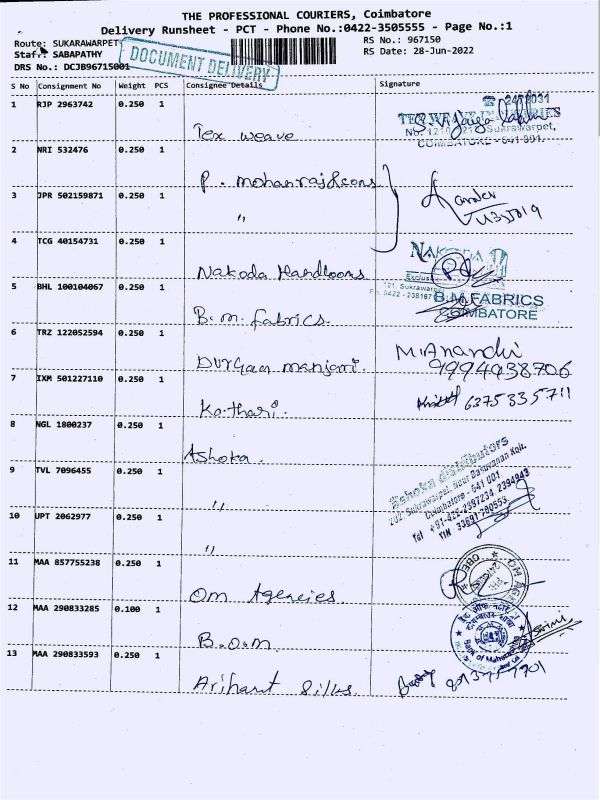 THE PROFESSIONAL COURIERS, Coimbatore
Delivery Runsheet - PCT - Phone No.:0422-3505555 - Page No.:1
Route: SUKARAWARPET
RS No.: 967150
Staff: SABAPATHY
RS Date: 28-Jun-2022
DRS No.: DCJB96715001
DOCUMENT DELIVERY
S No Consignment No Weight PCS Consignee Details Signature
1 RJP 2963742 0.250 1
Tex weave
COIMBATORE - 641 001.
2 NRI 532476 0.250 1
P. mohanraj & cons
3 JPR 502159871 0.250 1
"
4 TCG 40154731 0.250 1
Nakoda Handlooms
NAKODA
121, Sukrawarpet
5 BHL 100104067 0.250 1
B.M. FABRICS
COIMBATORE
B.m. fabrics.
6 TRZ 122052594 0.250 1
Durgaa manjari.
M. Anandhi
9994938706
7 IXM 501227110 0.250 1
Kothari.
6375335711
8 NGL 1800237 0.250 1
Ashoka.
Ashoka distributors
9 TVL 7096455 0.250 1
"
Coimbatore - 641 001
10 UPT 2062977 0.250 1
"
11 MAA 857755238 0.250 1
Om Agencies.
OM AGENCIES
12 MAA 290833285 0.100 1
B.O.M
Bank of Maharashtra
13 MAA 290833593 0.250 1
Arihant Silks